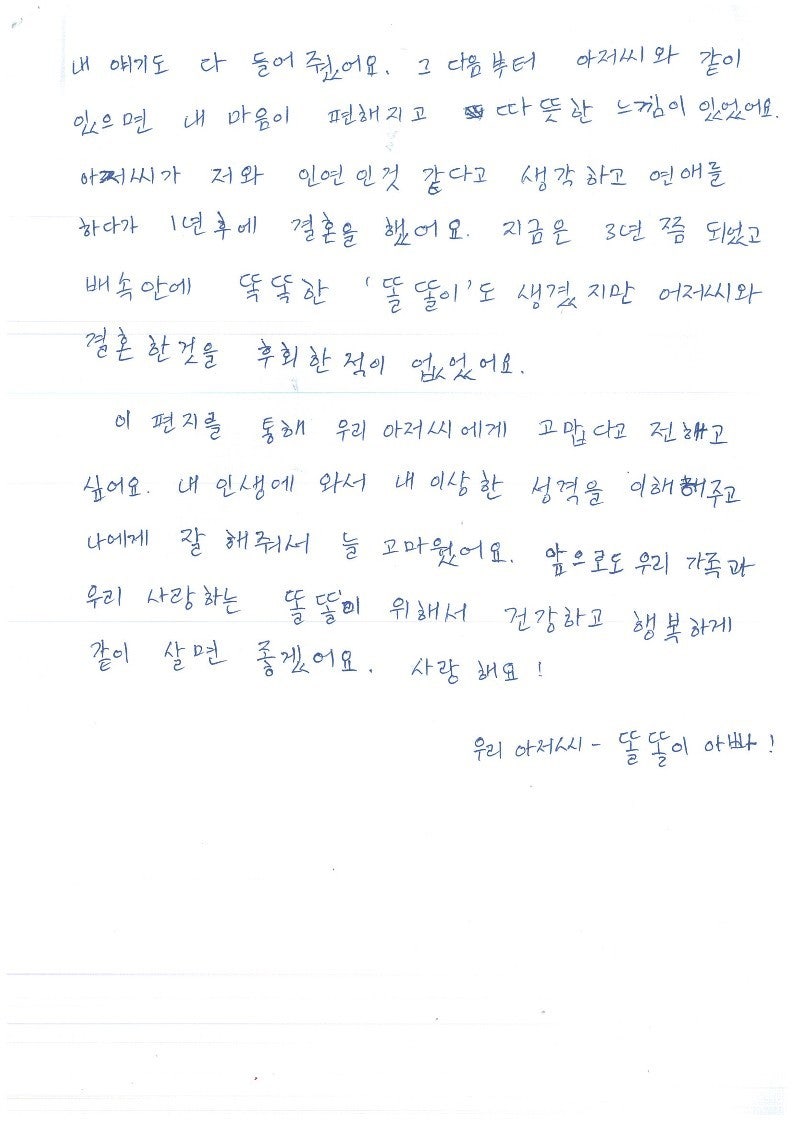 내 얘기도 다 들어 줬어요. 그 다음부터 아저씨와 같이
있으면 내 마음이 편해지고 따뜻한 느낌이 있었어요.
아저씨가 저와 인연인것 같다고 생각하고 연애를
하다가 1년후에 결혼을 했어요. 지금은 3년 쯤 되었고
배속안에 똑똑한 '똘똘이'도 생겼지만 어저씨와
결혼한것을 후회한적이 없었어요.
이 편지를 통해 우리 아저씨에게 고맙다고 전해고
싶어요. 내 인생에 와서 내 이상한 성격을 이해해주고
나에게 잘 해줘서 늘 고마웠어요. 앞으로도 우리 가족과
우리 사랑하는 똘똘이 위해서 건강하고 행복하게
같이 살면 좋겠어요. 사랑해요!
우리 아저씨 - 똘똘이 아빠!